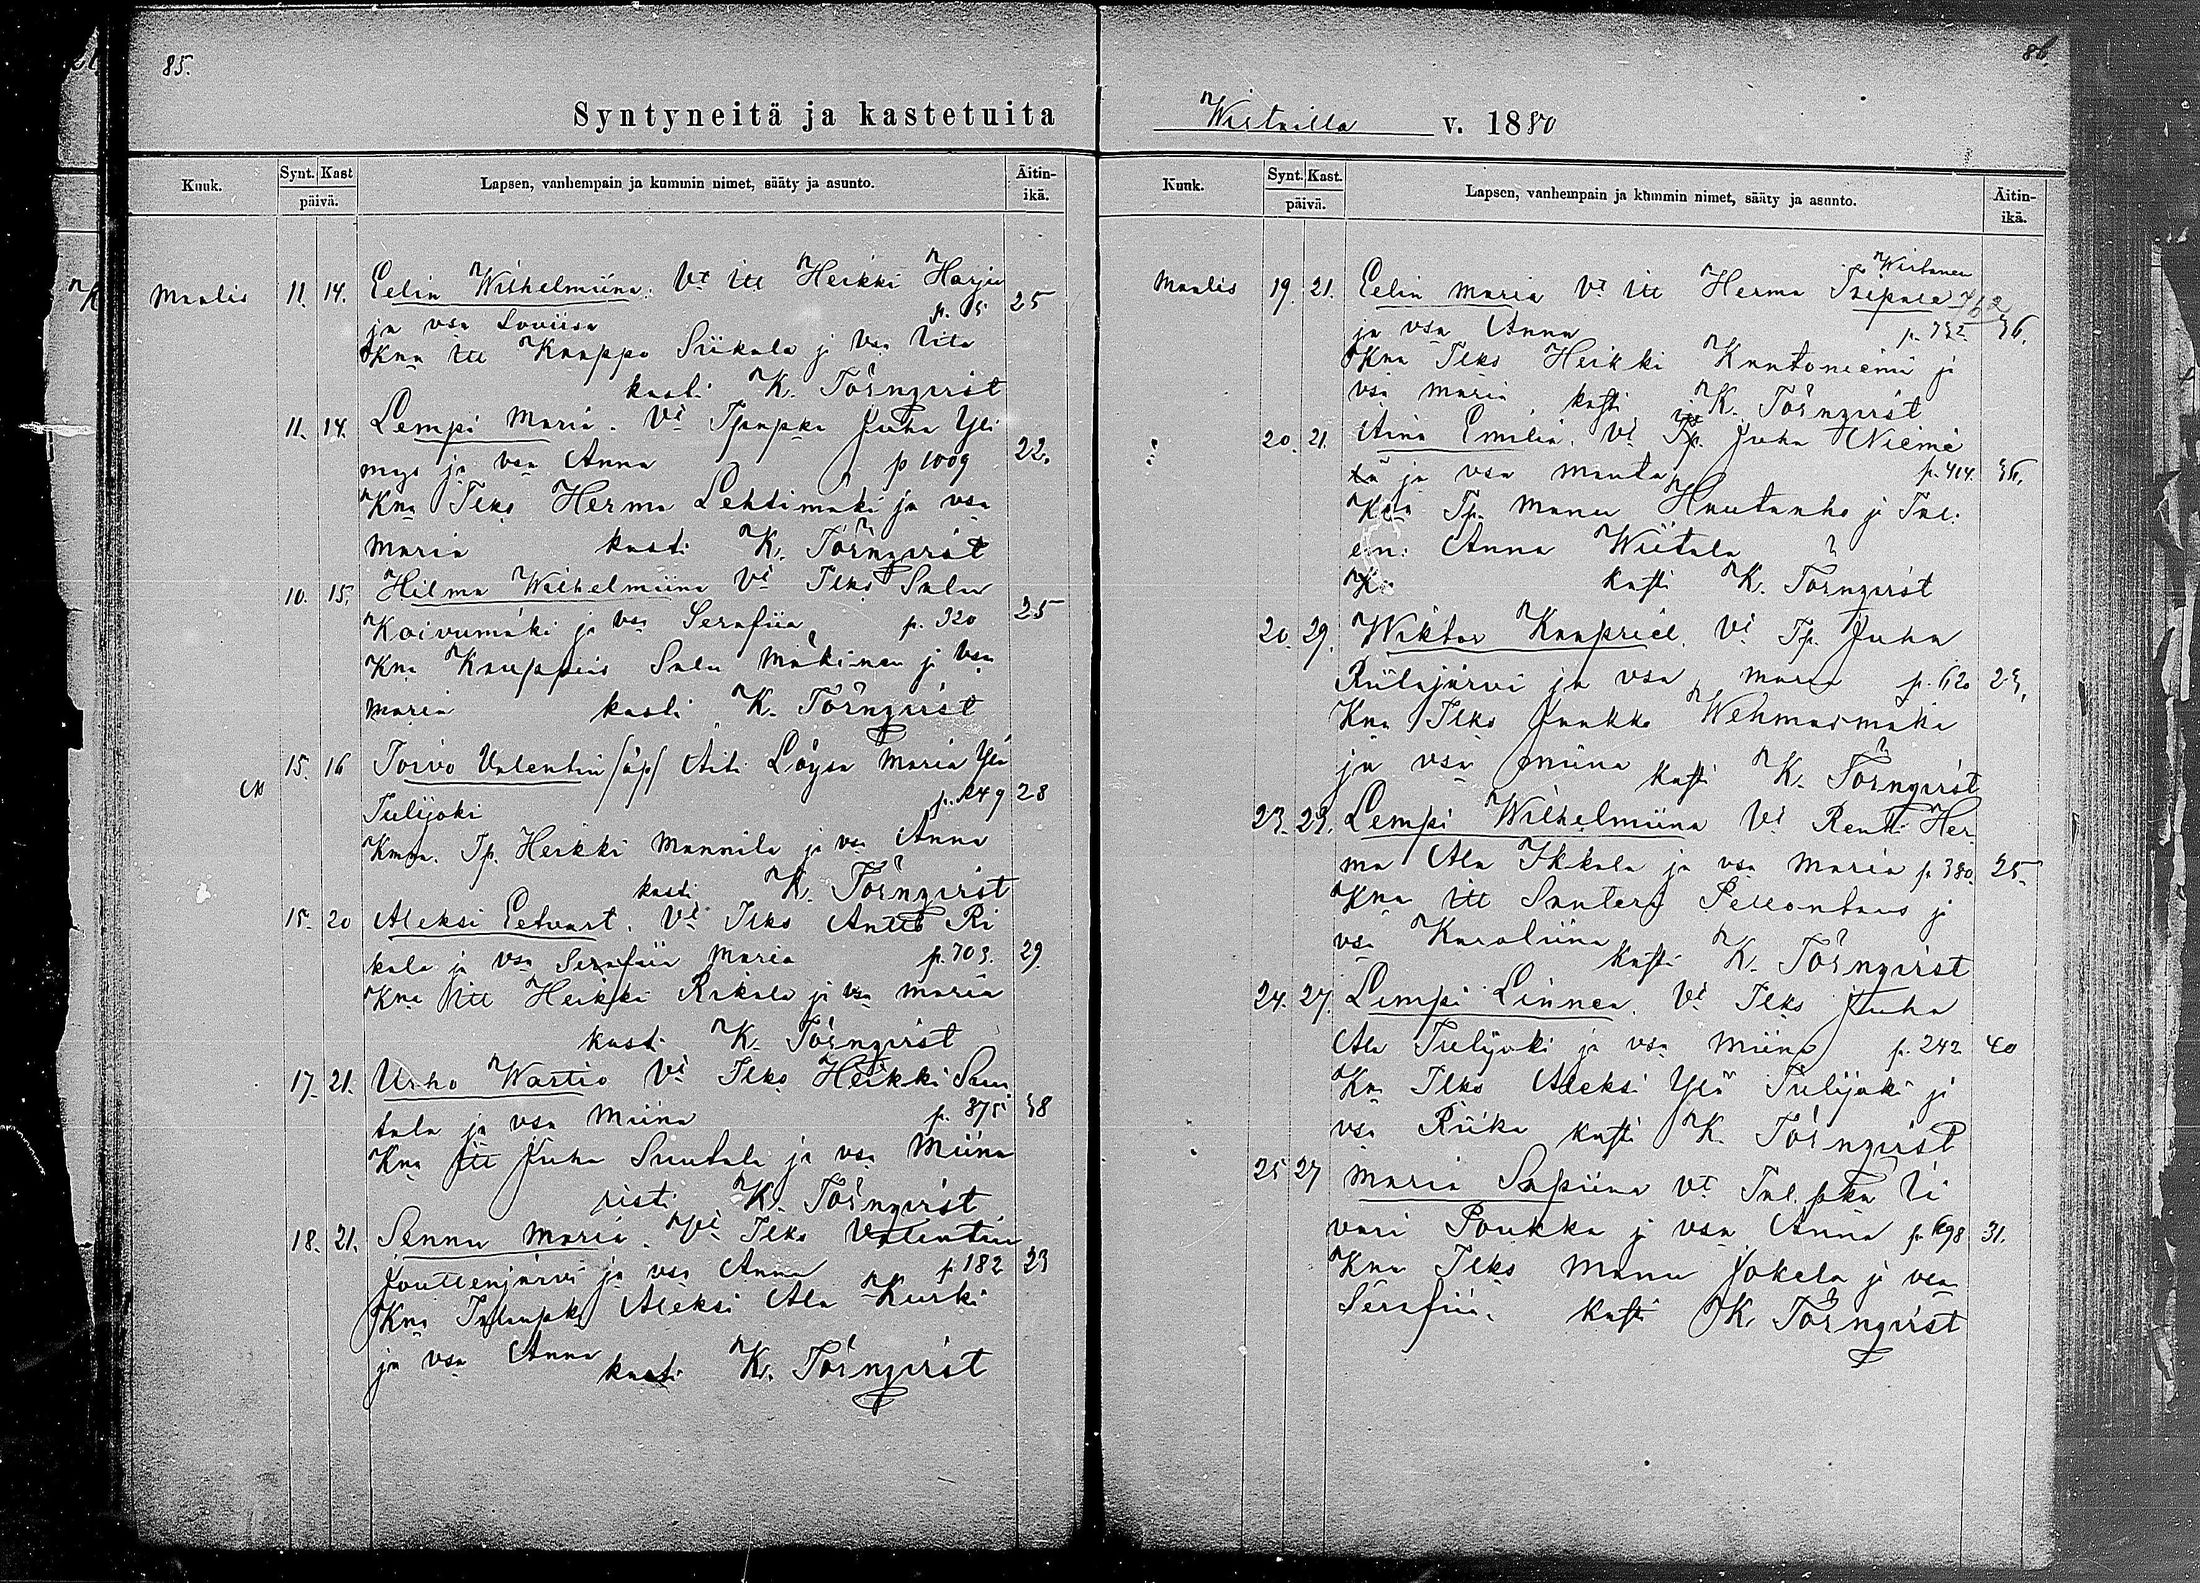 85.
Syntyneitä ja kastetuita
Kuuk.
Synt. Kast
päivä.
Lapsen, vanhempain ja kummin nimet, sääty ja asunto.
Äitin-
ikä.
Maalis 11. 14. Eelin Wilhelmiina. Vt Itt Heikki Harju
ja vsa Loviisa p. 15 25
Kna Itt Kaappo Siikala j Vsa
kasti K. Törnqvist
11. 14. Lempi Maria. Vt Juha Yli
mys ja vsa Anna p 1009 22.
Kna Tlks Herma Lehtimäki ja vsa
Maria kasti K. Törnqvist
10. 15. Hilma Wilhelmiina Vt Tlks Salu
Koivumäki ja vsa Serafiia p. 320 25
Kna Kauppias Salu Mäkinen j Vsa
Maria kasti K. Törnqvist
15. 16 Toivo Valentin /äp/ Äiti Löysä Maria Ylä
Tulijoki p. 249 28
Kmma. Tp. Heikki Mannila ja vsa Anna
kasti K. Törnqvist
15. 20 Aleksi Eetvart. Vt Tlks Antti Ri
kala ja Vsa Serafiia Maria p. 703. 29.
Kna Itt Heikki Rikala ja vsa Maria
kasti K. Törnqvist
17. 21. Urho Wartio Vt Tlks Heikki Suu
tala ja vsa Miina p. 375 38
Kna Itt Juha Suutala ja vsa Miina
risti K. Törnqvist
18. 21. Sanna Maria. Vt Tlks Valentin
Jouttenjärvi ja vsa Anna p. 182 23
Kna Aleksi Ala Kurki
ja vsa Anna kasti K. Törnqvist
86.
v. 1880
Kuuk.
Synt. Kast.
päivä.
Lapsen, vanhempain ja kummin nimet, sääty ja asunto.
Äitin-
ikä.
Wirtanen
Maalis 19. 21. Eelin Maria Vt Itt Herma Taipale 762
ja vsa Anna p. 732 36.
Kna Tlks Heikki Kantoniemi ja
vsa Maria kasti K. Törnqvist
20. 21. Aina Emilia. Vt Tp. Juha Nieme
lä ja vsa Manta p. 414. 36.
Kna Tp. Manu Hautanho j Tal.
em: Anna Wiitala
K. kasti K. Törnqvist
20. 29. Wiktor Kaapriel. Vt Tp. Juha
Riilajärvi ja vsa Maria p. 620 23.
Kna Tlks Jaakko Wehmasmäki
ja vsa Miina kasti K. Törnqvist
23. 23. Lempi Wilhelmiina Vt Rentt. Her
ma Ala Ikkala ja vsa Maria p 380. 25.
Kna Itt Santeri Pellontaus j
vsa Karoliina kasti K. Törnqvist
24. 27. Lempi Linnea. Vt Tlks Juha
Ala Tulijoki ja vsa Miina p. 242 40
Kn Tlks Aleksi Ylä Tulijoki ja
vsa Riika kasti K. Törnqvist
25 27 Maria Sapiina Vt Tal. pka Ii
vari Poukka j vsa Anna p. 698 31.
Kna Tlks Manu Jokela ja vsa
Serafiia. kasti K Törnqvist